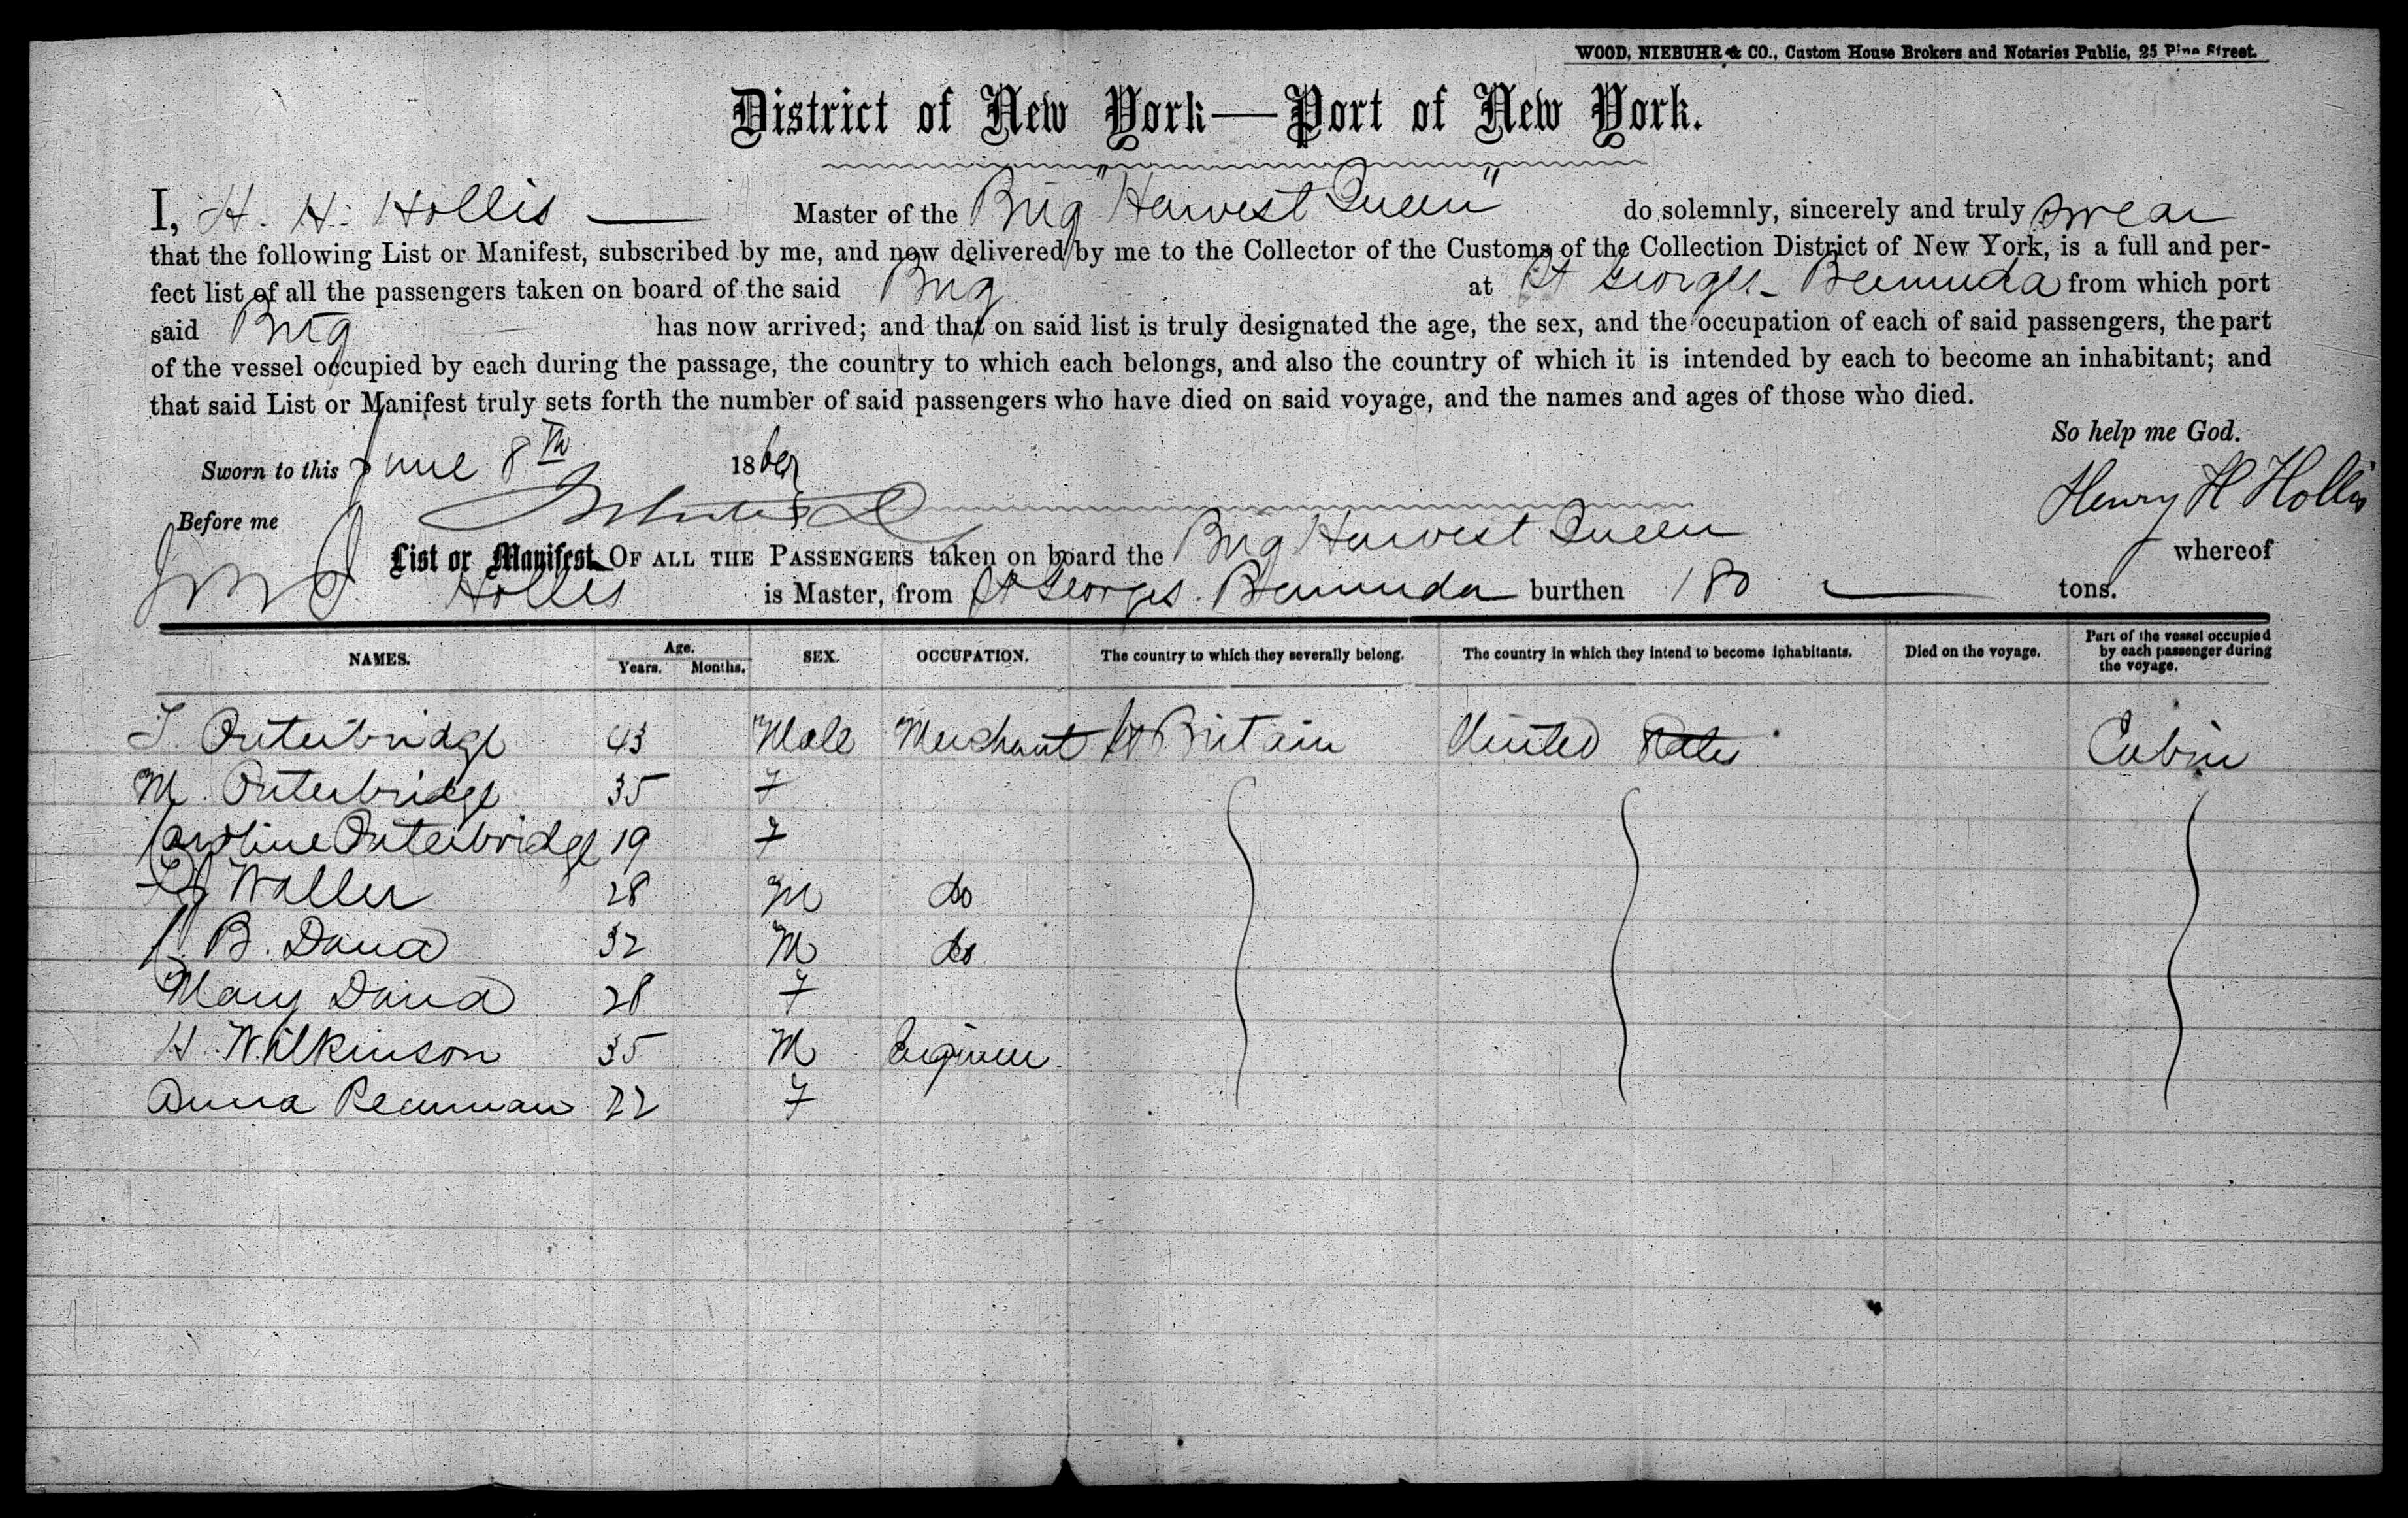 WOOD, NIEBUHR & CO., Custom House Brokers and Notaries Public, 25 Pine Street.
District of New York—Port of New York.
I, H. H. Hollis Master of the Brig "Harvest Queen" do solemnly, sincerely and truly swear
that the following List or Manifest, subscribed by me, and now delivered by me to the Collector of the Customs of the Collection District of New York, is a full and per-
fect list of all the passengers taken on board of the said Brig at St Georges - Bermuda from which port
said Brig has now arrived; and that on said list is truly designated the age, the sex, and the occupation of each of said passengers, the part
of the vessel occupied by each during the passage, the country to which each belongs, and also the country of which it is intended by each to become an inhabitant; and
that said List or Manifest truly sets forth the number of said passengers who have died on said voyage, and the names and ages of those who died.
So help me God.
Sworn to this June 8th 18
Henry H Hollis
Before me
List or Manifest OF ALL THE PASSENGERS taken on board the Brig Harvest Queen whereof
Hollis is Master, from St Georges. Bermuda burthen 180 tons.
NAMES. Age. Years. Months. SEX. OCCUPATION. The country to which they severally belong. The country in which they intend to become inhabitants. Died on the voyage. Part of the vessel occupied by each passenger during the voyage.
T. Outerbridge 43 Male Merchant Gt Britain United States Cabin
M. Outerbridge 35 F
Caroline Outerbridge 19 F
Waller 28 M do
B. Dana 32 M do
Mary Dana 28 F
H. Wilkinson 35 M Engineer
Anna Pearman 22 F